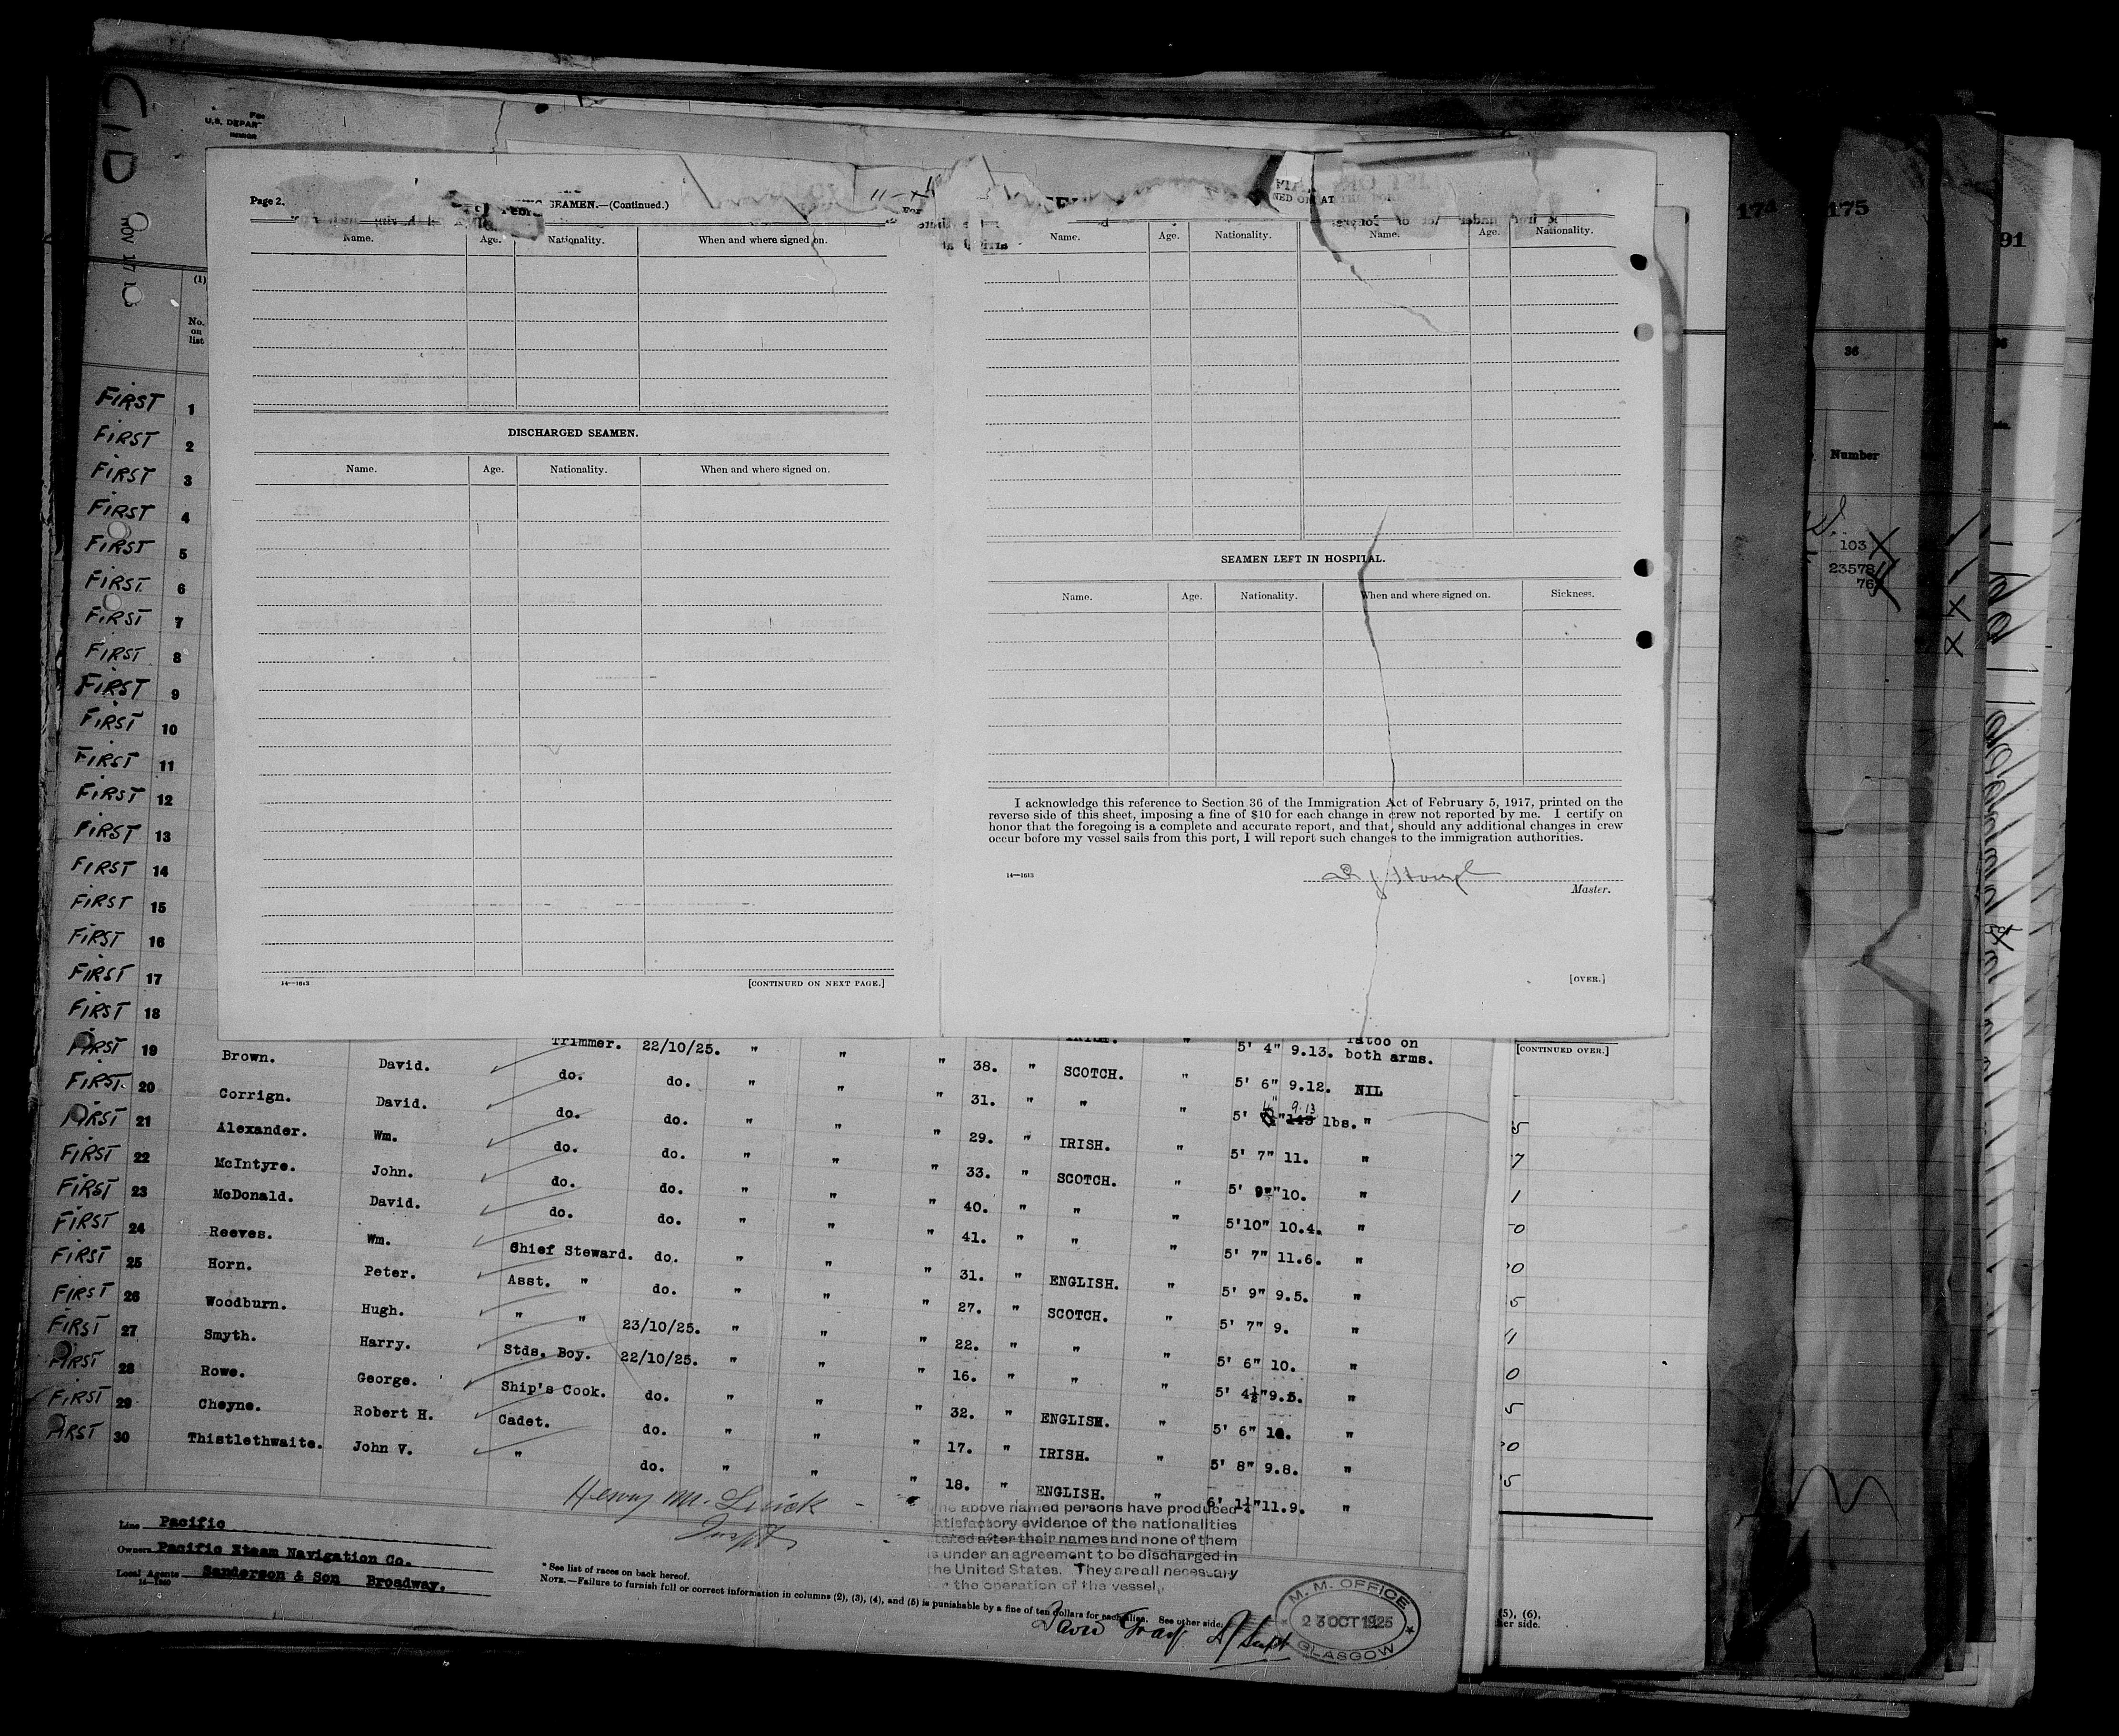 CID
U.S. DEPAR
NOV 17
(1)
No.
on
list
Page 2.
SEAMEN.—(Continued.)
Name. Age. Nationality. When and where signed on.
DISCHARGED SEAMEN.
Name. Age. Nationality. When and where signed on.
14—1613 [CONTINUED ON NEXT PAGE.]
Name. Age. Nationality. Name. Age. Nationality.
SEAMEN LEFT IN HOSPITAL.
Name. Age. Nationality. When and where signed on. Sickness.
I acknowledge this reference to Section 36 of the Immigration Act of February 5, 1917, printed on the
reverse side of this sheet, imposing a fine of $10 for each change in crew not reported by me. I certify on
honor that the foregoing is a complete and accurate report, and that, should any additional changes in crew
occur before my vessel sails from this port, I will report such changes to the immigration authorities.
14—1613
Master.
[OVER.]
174 175
91
36
Number
103
23578
76
FIRST 1
FIRST 2
FIRST 3
FIRST 4
FIRST 5
FIRST 6
FIRST 7
FIRST 8
FIRST 9
FIRST 10
FIRST 11
FIRST 12
FIRST 13
FIRST 14
FIRST 15
FIRST 16
FIRST 17
FIRST 18
FIRST 19 Brown. David. Trimmer. 22/10/25. " " " 38. " SCOTCH. " 5' 4" 9.13. Tatoo on both arms.
FIRST 20 Corrign. David. do. do. " " " 31. " " " 5' 6" 9.12. NIL
FIRST 21 Alexander. Wm. do. do. " " " 29. " IRISH. " 5' 9.13 145 lbs. "
FIRST 22 McIntyre. John. do. do. " " " 33. " SCOTCH. " 5' 7" 11. "
FIRST 23 McDonald. David. do. do. " " " 40. " " " 5' 9" 10. "
FIRST 24 Reeves. Wm. do. do. " " " 41. " " " 5'10" 10.4. "
FIRST 25 Horn. Peter. Chief Steward. do. " " " 31. " ENGLISH. " 5' 7" 11.6. "
FIRST 26 Woodburn. Hugh. Asst. " do. " " " 27. " SCOTCH. " 5' 9" 9.5. "
FIRST 27 Smyth. Harry. " " 23/10/25. " " " 22. " " " 5' 7" 9. "
FIRST 28 Rowe. George. Stds. Boy. 22/10/25. " " " 16. " " " 5' 6" 10. "
FIRST 29 Cheyne. Robert H. Ship's Cook. do. " " " 32. " ENGLISH. " 5' 4½" 9.5. "
FIRST 30 Thistlethwaite. John V. Cadet. do. " " " 17. " IRISH. " 5' 6" 10. "
" do. " " " 18. " ENGLISH. " 5' 8" 9.8. "
6' 1¼" 11.9. "
[CONTINUED OVER.]
Henry M.
Line Pacific
Owners Pacific Steam Navigation Co.
Local Agents Sanderson & Son Broadway.
14—1240
* See list of races on back hereof.
NOTE.—Failure to furnish full or correct information in columns (2), (3), (4), and (5) is punishable by a fine of ten dollars for each alien. See other side.
The above named persons have produced
satisfactory evidence of the nationalities
stated after their names and none of them
is under an agreement to be discharged in
the United States. They are all necessary
for the operation of the vessel.
David Gray
M. M. OFFICE
23 OCT 1925
GLASGOW
(5), (6).
her side.